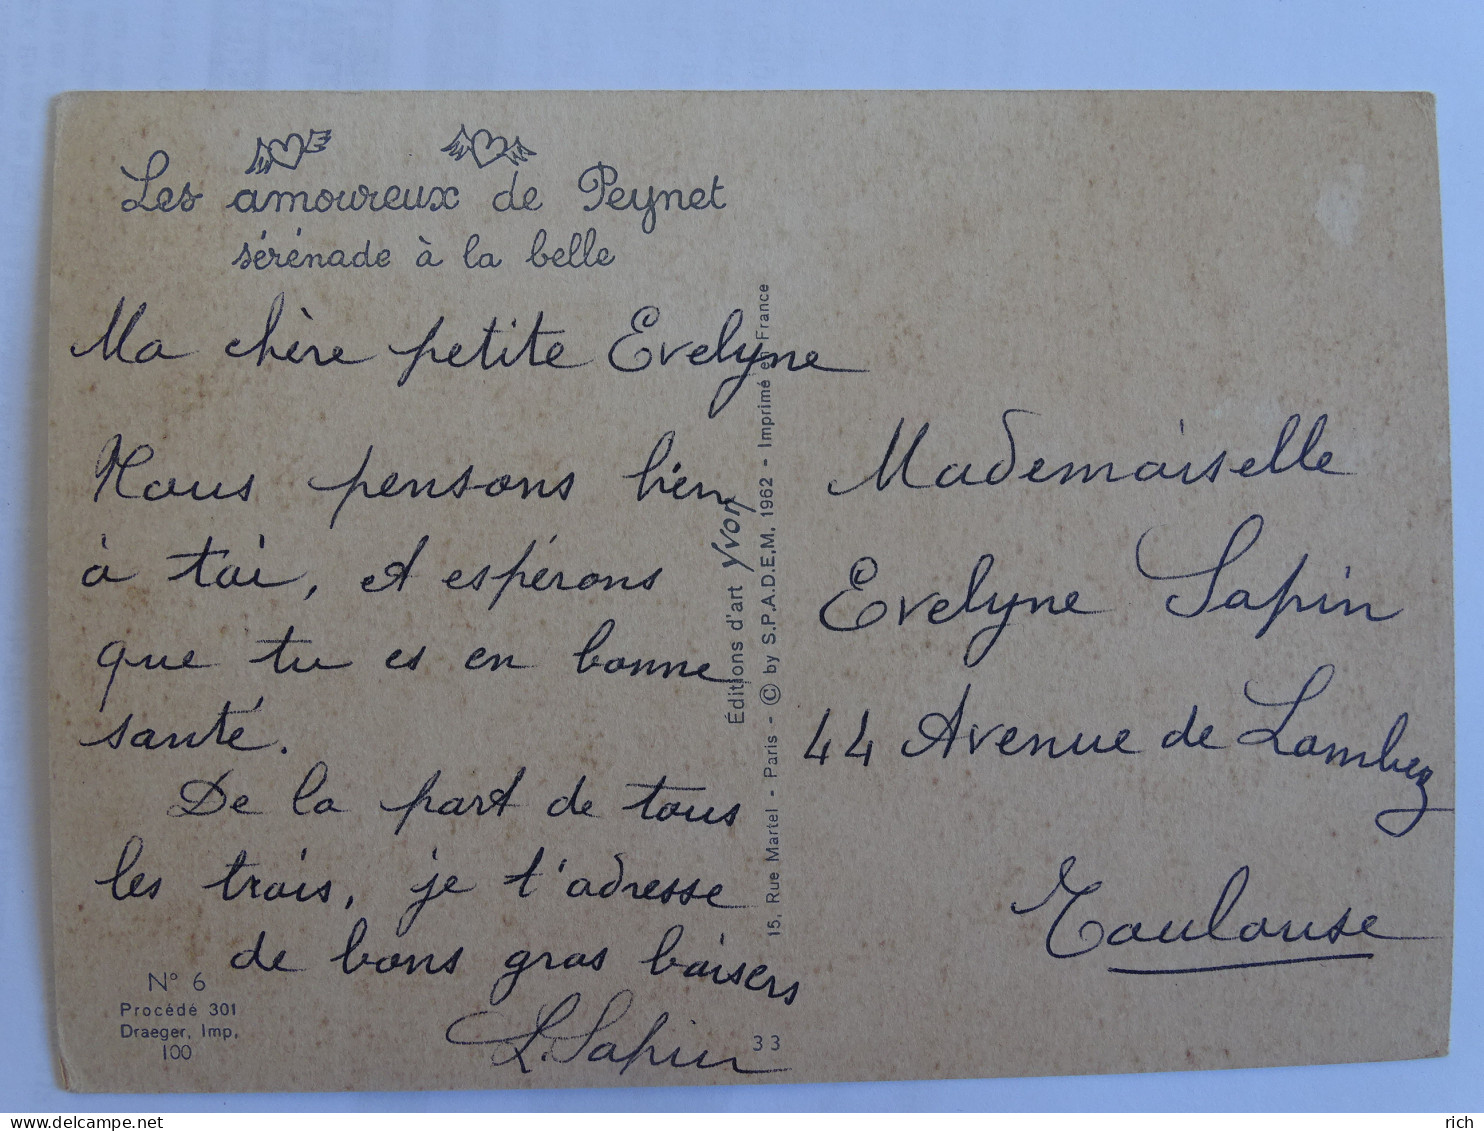 Les amoureux de Peynet
sérénade à la belle
Ma chère petite Evelyne
Nous pensons bien
à toi, et espérons
que tu es en bonne
santé.
De la part de tous
les trois, je t'adresse
de bons gros baisers
L. Sapin
N° 6
Procédé 301
Draeger, Imp.
100
Éditions d'art Yvon
15, Rue Martel - Paris - © by S.P.A.D.E.M. 1962 - Imprimé en France
33
Mademoiselle
Evelyne Sapin
44 Avenue de Lombez
Toulouse
delcampe.net
rich